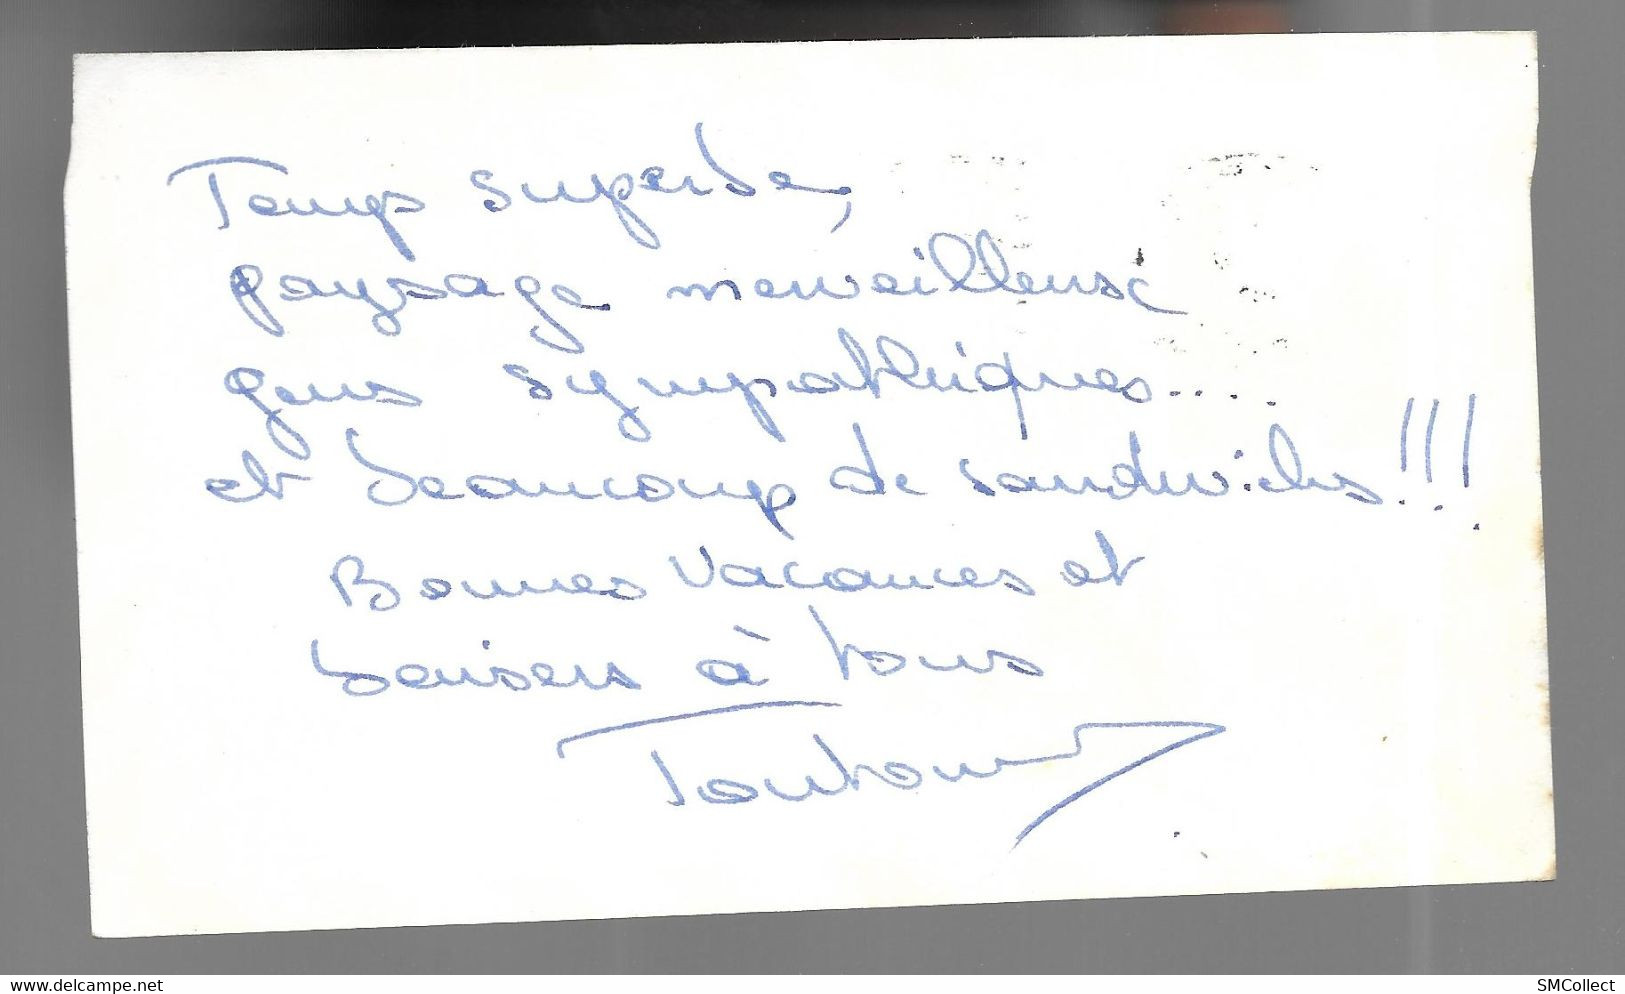 Temps superbe,
paysage merveilleux
gens sympathiques....
et beaucoup de sandwichs!!!
Bonnes vacances et
baisers à tous
delcampe.net
SMCollect